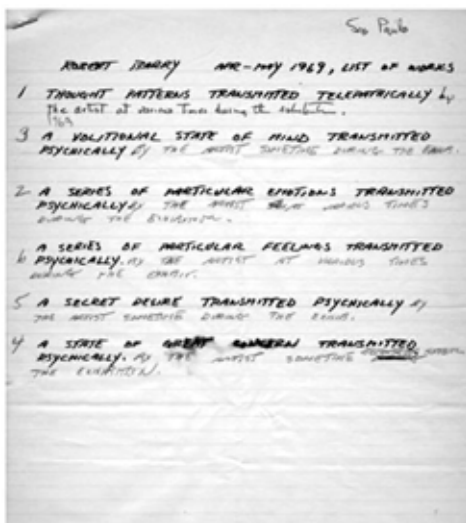 Sao Paulo
ROBERT BARRY APR-MAY 1969, LIST OF WORKS
1 THOUGHT PATTERNS TRANSMITTED TELEPATHICALLY by
the artist at various times during the exhibition.
1969
3 A VOLITIONAL STATE OF MIND TRANSMITTED
PSYCHICALLY BY THE ARTIST SOMETIME DURING THE EXHIB.
2 A SERIES OF PARTICULAR EMOTIONS TRANSMITTED
PSYCHICALLY BY THE ARTIST AT VARIOUS TIMES
DURING THE EXHIBITION.
A SERIES OF PARTICULAR FEELINGS TRANSMITTED
6 PSYCHICALLY. BY THE ARTIST AT VARIOUS TIMES
DURING THE EXHIBIT.
5 A SECRET DESIRE TRANSMITTED PSYCHICALLY BY
THE ARTIST SOMETIME DURING THE EXHIB.
4 A STATE OF GREAT CONCERN TRANSMITTED
PSYCHICALLY. BY THE ARTIST SOMETIME DURING
THE EXHIBITION.